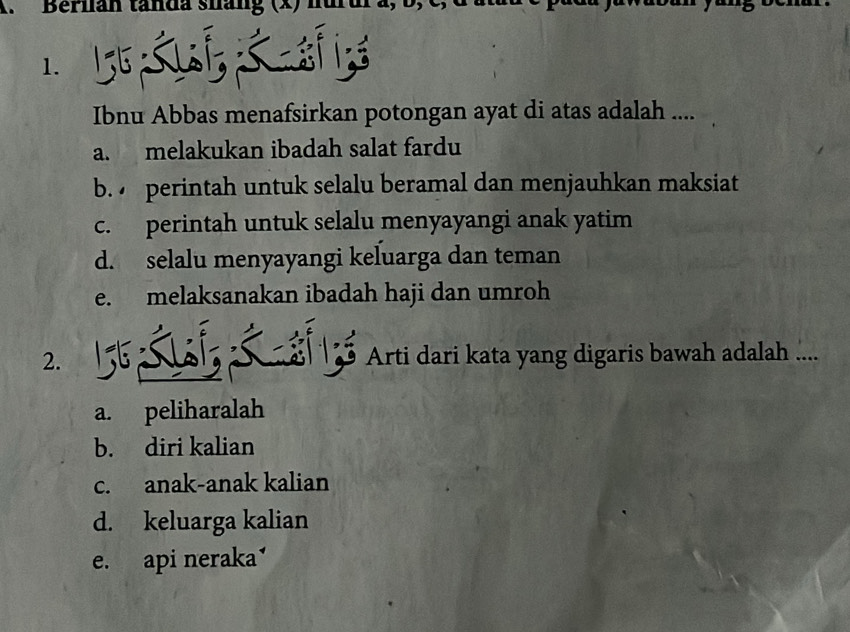 Berilah tanda silang (x) huruf a, b, c, d atau e pada jawaban yang benar!
1. قُوْا أَنْفُسَكُمْ وَأَهْلِكُمْ نَارًا
Ibnu Abbas menafsirkan potongan ayat di atas adalah ....
a. melakukan ibadah salat fardu
b. perintah untuk selalu beramal dan menjauhkan maksiat
c. perintah untuk selalu menyayangi anak yatim
d. selalu menyayangi keluarga dan teman
e. melaksanakan ibadah haji dan umroh
2. قُوْا أَنْفُسَكُمْ وَأَهْلِكُمْ نَارًا Arti dari kata yang digaris bawah adalah ....
a. peliharalah
b. diri kalian
c. anak-anak kalian
d. keluarga kalian
e. api neraka